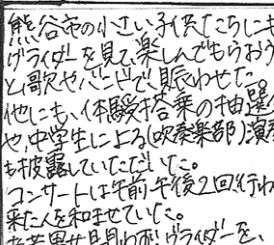 熊谷市の小さい子供たちにも
グライダーを見て楽しんでもらおう
と歌やバンドで賑わせた。
他にも、体験搭乗の抽選会
や、中学生による(吹奏楽部)演奏
も披露していただいた。
コンサートは午前、午後2回行わ
来た人を和ませていた。
老若男女問わずグライダーを、